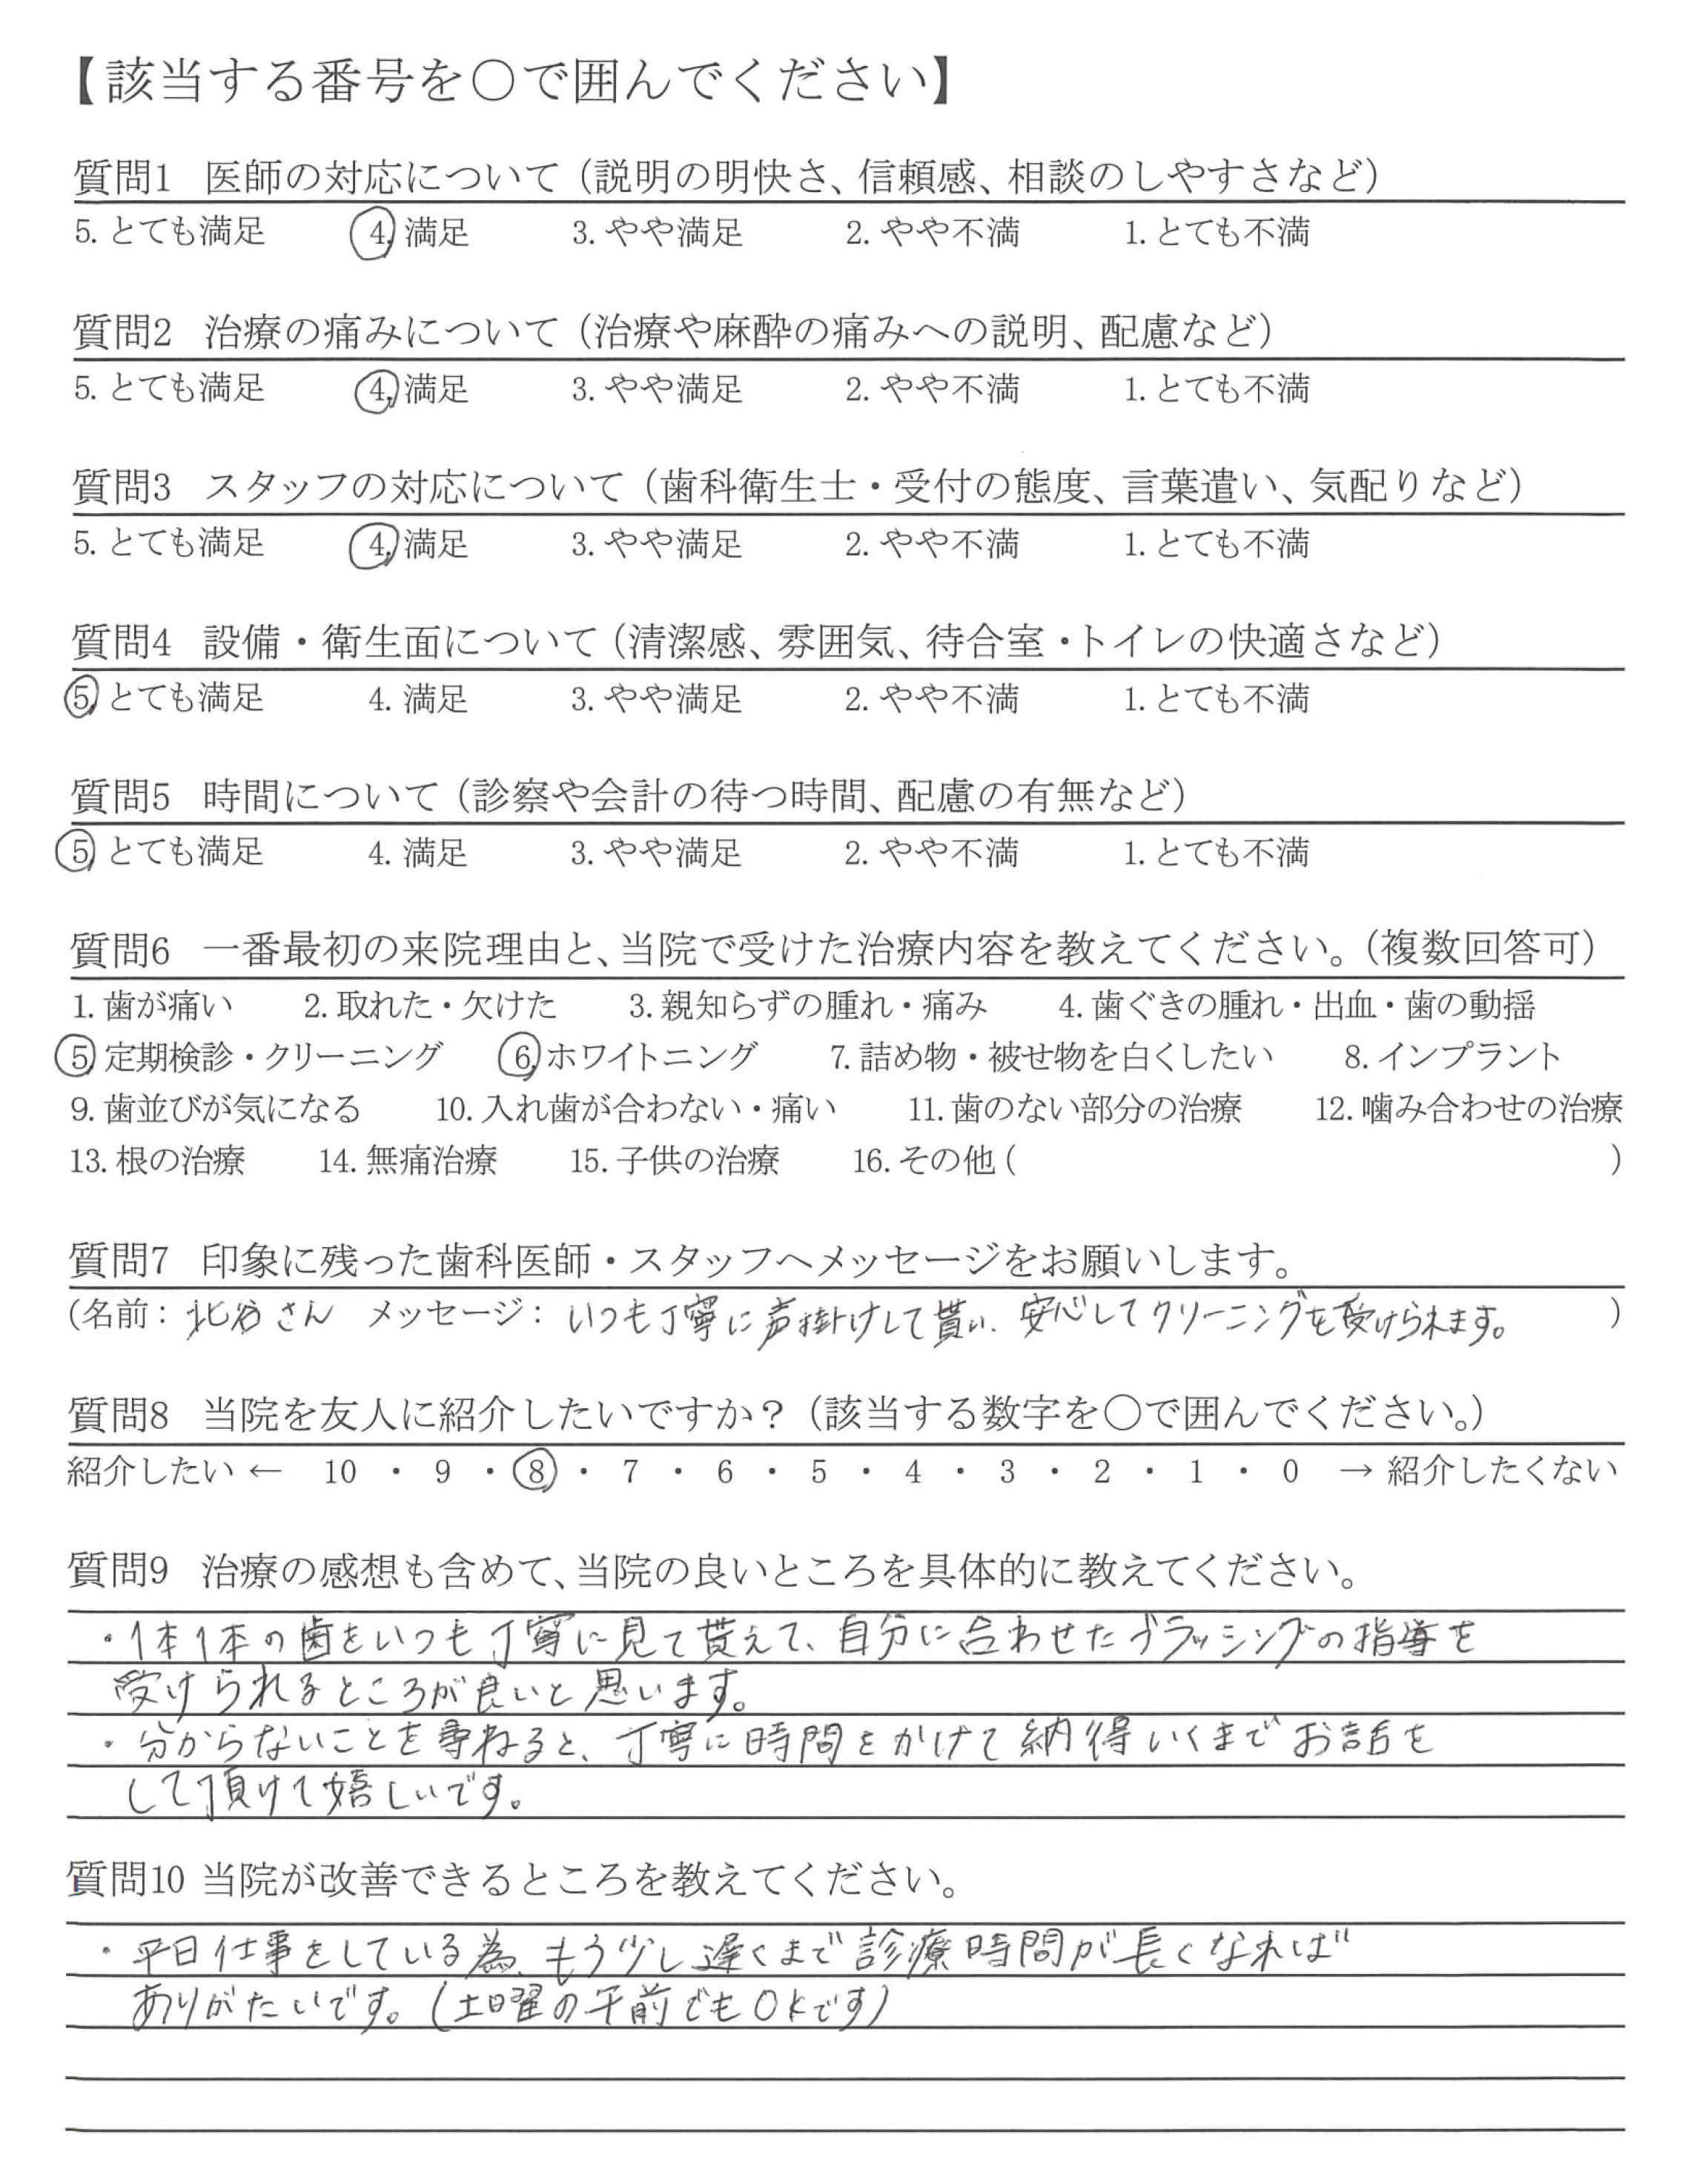 【該当する番号を○で囲んでください】
質問1 医師の対応について（説明の明快さ、信頼感、相談のしやすさなど）
5. とても満足 4. 満足 3. やや満足 2. やや不満 1. とても不満
質問2 治療の痛みについて（治療や麻酔の痛みへの説明、配慮など）
5. とても満足 4. 満足 3. やや満足 2. やや不満 1. とても不満
質問3 スタッフの対応について（歯科衛生士・受付の態度、言葉遣い、気配りなど）
5. とても満足 4. 満足 3. やや満足 2. やや不満 1. とても不満
質問4 設備・衛生面について（清潔感、雰囲気、待合室・トイレの快適さなど）
5. とても満足 4. 満足 3. やや満足 2. やや不満 1. とても不満
質問5 時間について（診察や会計の待つ時間、配慮の有無など）
5. とても満足 4. 満足 3. やや満足 2. やや不満 1. とても不満
質問6 一番最初の来院理由と、当院で受けた治療内容を教えてください。（複数回答可）
1. 歯が痛い 2. 取れた・欠けた 3. 親知らずの腫れ・痛み 4. 歯ぐきの腫れ・出血・歯の動揺
5. 定期検診・クリーニング 6. ホワイトニング 7. 詰め物・被せ物を白くしたい 8. インプラント
9. 歯並びが気になる 10. 入れ歯が合わない・痛い 11. 歯のない部分の治療 12. 噛み合わせの治療
13. 根の治療 14. 無痛治療 15. 子供の治療 16. その他（ ）
質問7 印象に残った歯科医師・スタッフへメッセージをお願いします。
（名前：北谷さん メッセージ：いつも丁寧に声掛けして貰い、安心してクリーニングを受けられます。）
質問8 当院を友人に紹介したいですか？（該当する数字を○で囲んでください。）
紹介したい ← 10 ・ 9 ・ 8 ・ 7 ・ 6 ・ 5 ・ 4 ・ 3 ・ 2 ・ 1 ・ 0 → 紹介したくない
質問9 治療の感想も含めて、当院の良いところを具体的に教えてください。
・1本1本の歯をいつも丁寧に見て貰えて、自分に合わせたブラッシングの指導を
受けられるところが良いと思います。
・分からないことを尋ねると、丁寧に時間をかけて納得いくまでお話を
して頂けて嬉しいです。
質問10 当院が改善できるところを教えてください。
・平日仕事をしている為、もう少し遅くまで診療時間が長くなれば
ありがたいです。（土曜の午前でもOKです）